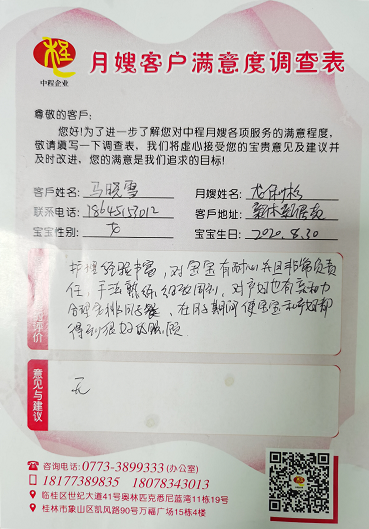 中程企业
月嫂客户满意度调查表
尊敬的客户:
您好!为了进一步了解您对中程月嫂各项服务的满意程度,
敬请填写一下调查表,我们将虚心接受您的宝贵意见及建议并
及时改进,您的满意是我们追求的目标!
客户姓名: 马晓雪 月嫂姓名:
联系电话: 18645153012 客户地址:
宝宝性别: 女 宝宝生日: 2020.8.30
评价
护理经验丰富,对宝宝有耐心并且非常负责
任,手法熟练细致周到,对产妇也有亲和力
合理安排月子餐、在月子期间使宝宝和产妇都
得到很好的照顾
意见与建议
无
咨询电话:0773-3899333(办公室)
18177389835 18078343013
临桂区世纪大道41号奥林匹克悉尼蓝湾11栋19号
桂林市象山区凯风路90号万福广场15栋4楼